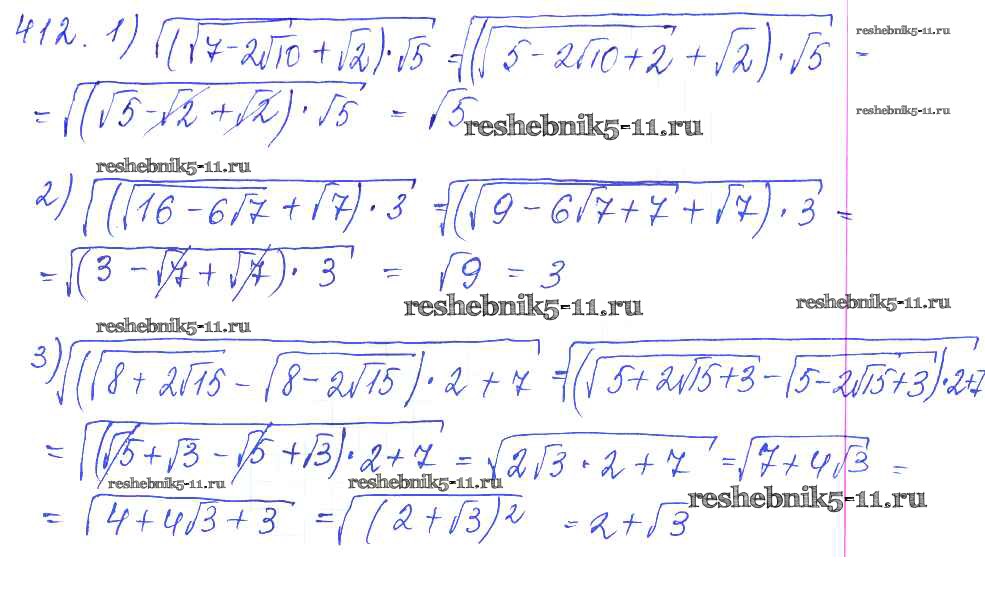 412. 1) √((√(7-2√10) + √2)·√5) = √((√(5-2√10+2) + √2)·√5) = reshebnik5-11.ru
= √((√5-√2+√2)·√5) = √5 reshebnik5-11.ru reshebnik5-11.ru
reshebnik5-11.ru
2) √((√(16-6√7) + √7)·3) = √((√(9-6√7+7) + √7)·3) =
= √((3-√7+√7)·3) = √9 = 3
reshebnik5-11.ru reshebnik5-11.ru
reshebnik5-11.ru
3) √((√(8+2√15) - √(8-2√15))·2+7) = √((√(5+2√15+3) - √(5-2√15+3))·2+7
= √((√5+√3-√5+√3)·2+7) = √(2√3·2+7) = √(7+4√3) =
reshebnik5-11.ru reshebnik5-11.ru reshebnik5-11.ru
= √(4+4√3+3) = √((2+√3)²) = 2+√3